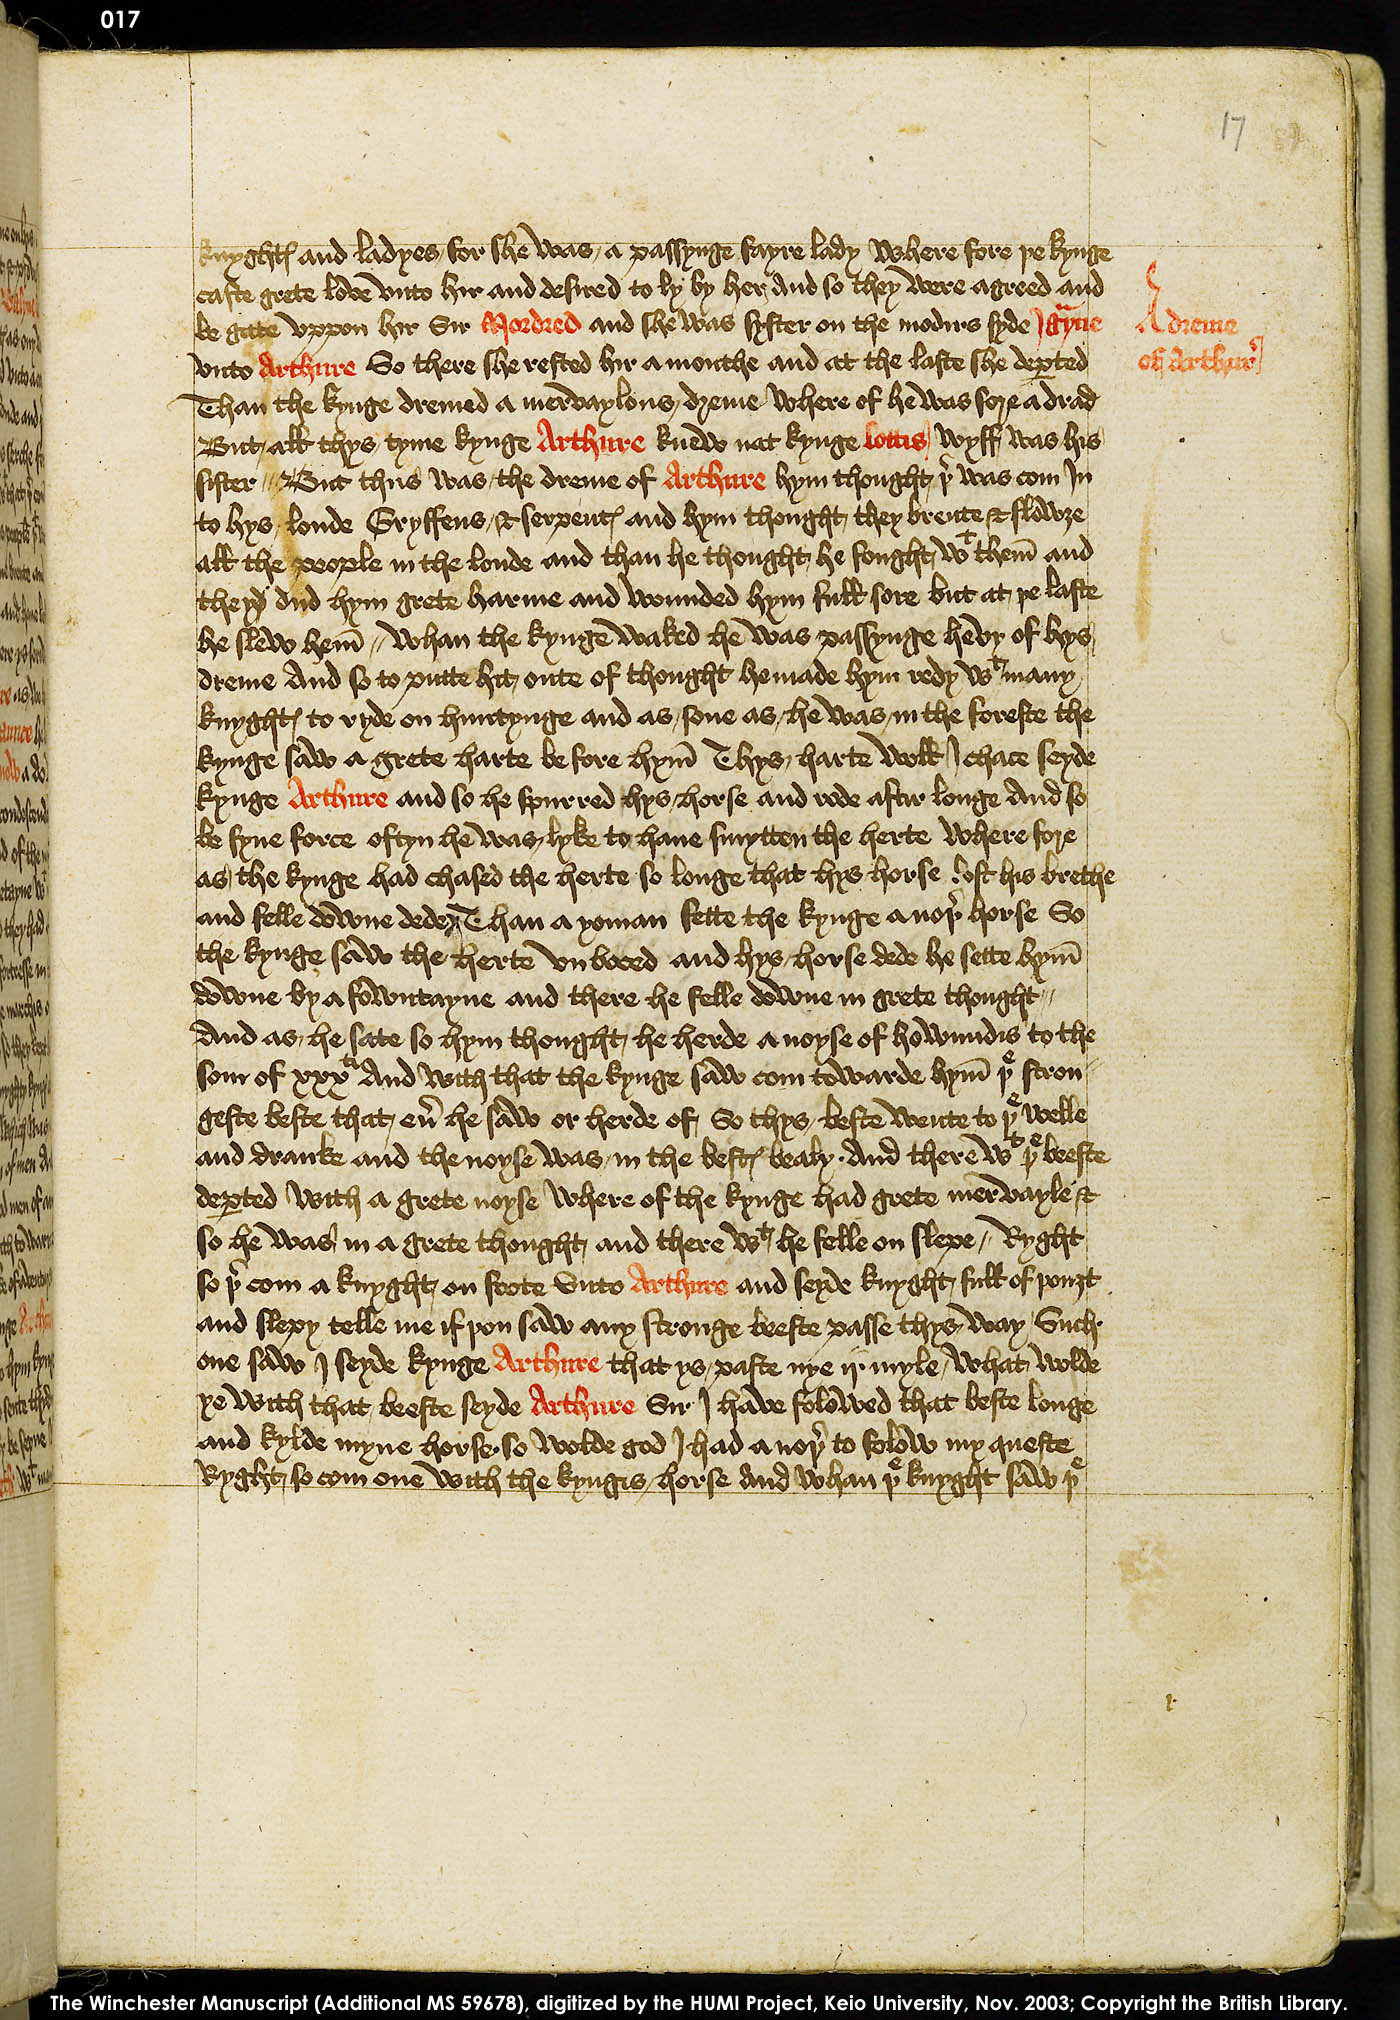 017
17
knyghtes and ladyes for she was a passynge fayre lady Where fore þe kynge
caste grete love vnto hir and desired to ly by her And so they were agreed and
be gate vppon hir Sir Mordred and she was syster on the modirs syde Igrayne
vnto Arthure So there she rested hir a monthe and at the laste she deꝑted
Than the kynge dremed a mervaylous dreme where of he was sore a drad
But all thys tyme kynge Arthure knew nat kynge lottis wyff was his
sister // But thus was the dreme of Arthure hym thought þr was com In
to hys londe Gryffens & serpentes and hym thought they brente & slowze
all the people in the londe and than he thought he fought wt them̅ and
they dud hym grete harme and wounded hym full sore but at þe laste
he slew hem̅ // Whan the kynge waked he was passynge hevy of hys
dreme And so to putte hit oute of thought he made hym redy wt many
knyghtes to ryde on huntynge and as sone as he was in the foreste the
kynge saw a grete harte be fore hym̅ Thys harte woll I chace seyde
kynge Arthure and so he spurred hys horse and rode aftir longe And so
be fyne force oftyn he was lyke to haue smytten the herte Where fore
as the kynge had chased the herte so longe that hys horse lost his brethe
and felle downe dede // Than a yoman fette the kynge a noþr horse So
the kynge saw the herte vnboced and hys horse dede he sette hym̅
downe by a fowntayne and there he felle downe in grete thought //
And as he sate so hym thought he herde a noyse of howundis to the
som of xxxti And with that the kynge saw com towarde hym̅ þe stron
geste beste that eu̓ he saw or herde of So thys beste wente to þe welle
and dranke and the noyse was in the bestes bealy . And there wt þe beeste
deꝑted with a grete noyse where of the kynge had grete mervayle &
so he was in a grete thought and there wt he felle on slepe // Ryght
so þr com a knyght on foote vnto Arthure and seyde knyght full of þouȝt
and slepy telle me if þou saw any stronge beeste passe thys way Such
one saw I seyde kynge Arthure that ys paste nye ij myle What wolde
ye with that beeste seyde Arthure Sir I have folowed that beste longe
and kylde myne horse . so wolde god I had a noþr to folow my queste
Ryght so com one with the kyngis horse And whan þe knyght saw þe
A dreme
of Arthurs
The Winchester Manuscript (Additional MS 59678), digitized by the HUMI Project, Keio University, Nov. 2003; Copyright the British Library.